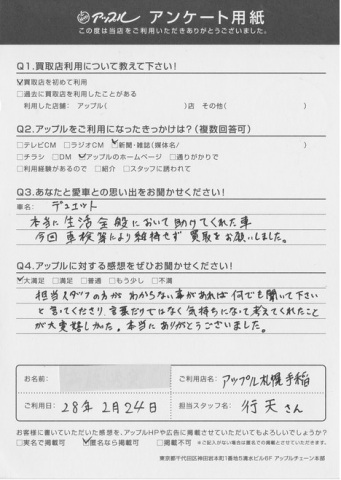 アップル アンケート用紙
この度は当店をご利用いただきありがとうございました。
Q1.買取店利用について教えて下さい!
☑買取店を初めて利用
□過去に買取店を利用したことがある
利用した店舗: アップル( )店 その他( )
Q2.アップルをご利用になったきっかけは?(複数回答可)
□テレビCM □ラジオCM ☑新聞・雑誌(媒体名/ )
□チラシ □DM ☑アップルのホームページ □通りがかりで
□利用経験があるので □紹介 □スタッフに誘われて
Q3.あなたと愛車との思い出をお聞かせください!
車名: デュエット
本当に生活全般において助けてくれた車
今回車検等により維持せず買取をお願いしました。
Q4.アップルに対する感想をぜひお聞かせください!
☑大満足 □満足 □普通 □もう少し □不満
担当スタッフの方がわからない事があれば何でも聞いて下さい
と言ってくださり、言葉だけではなく気持ちになって考えてくれたこと
が大変嬉しかた。本当にありがとうございました。
お名前:
ご利用店名: アップル札幌手稲
ご利用日: 28年 2月24日
担当スタッフ名: 行天さん
お客様に書いていただいた感想を、アップルHPや広告に掲載させていただいてもよろしいでしょうか?
□実名で掲載可 ☑匿名なら掲載可 □掲載不可 ※ご記入がない場合は匿名での掲載とさせていただきます。
東京都千代田区神田岩本町1番地5清水ビル6F アップルチェーン本部